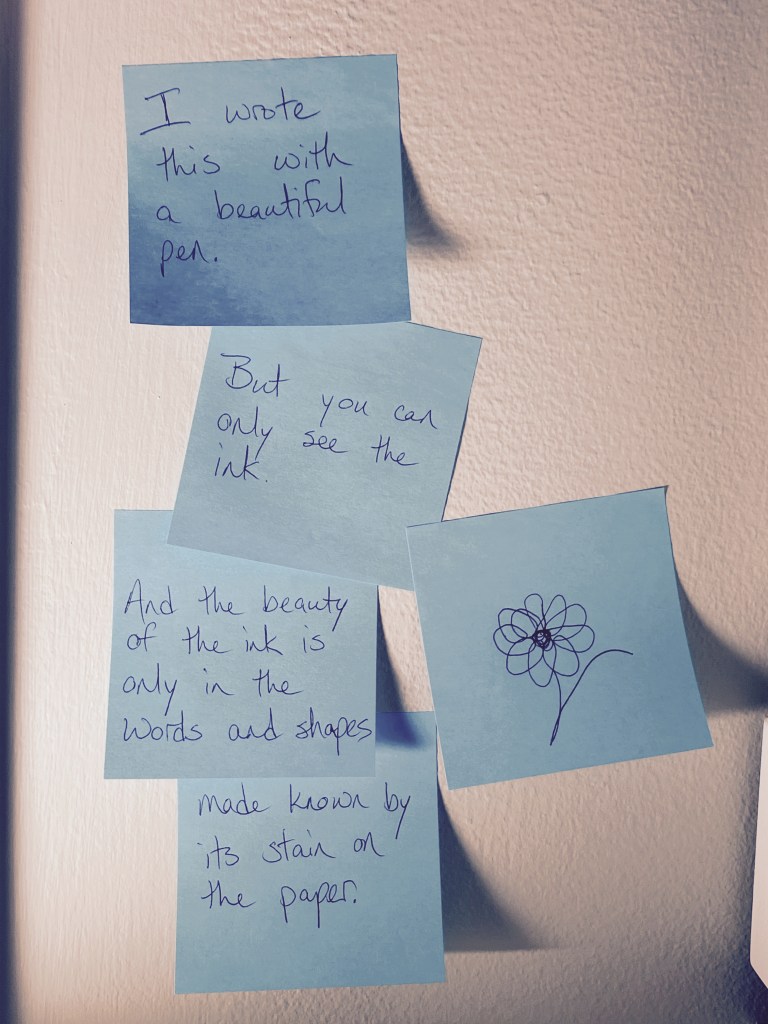 I wrote
this with
a beautiful
pen.
But you can
only see the
ink.
And the beauty
of the ink is
only in the
words and shapes
made known by
its stain on
the paper.